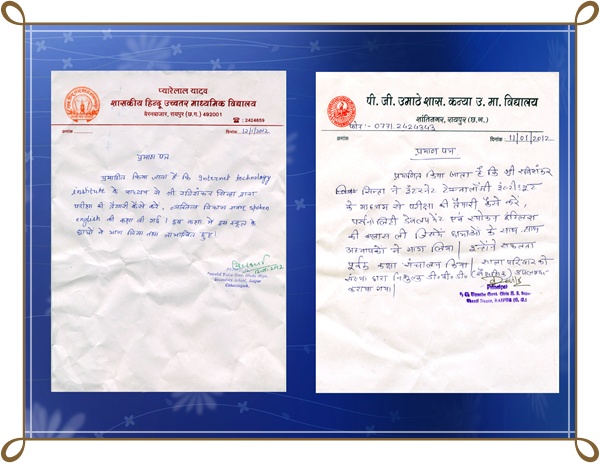 प्यारेलाल यादव
शासकीय हिन्दू उच्चतर माध्यमिक विद्यालय
बैरनबाजार, रायपुर (छ.ग.) 492001
☎ : 2424659
क्रमांक दिनांक 12/1/2012
प्रमाण पत्र
प्रमाणित किया जाता है कि Internet technology
institute के माध्यम से श्री रविशंकर सिन्हा द्वारा
परीक्षा की तैयारी कैसे करें, व्यक्तित्व विकास एवम् spoken
english की कक्षा ली गई। इस कक्षा में इस स्कूल के
छात्रों ने भाग लिया तथा लाभान्वित हुए।
Secondary School, Raipur
Chhattisgarh
पी. जी. उमाठे शास. कन्या उ. मा. विद्यालय
शांतिनगर, रायपुर (छ.ग.)
फोन:- 0771.2424343
क्रमांक दिनांक 12/01/2012
प्रमाण पत्र
प्रमाणित किया जाता है कि श्री रविशंकर
सिन्हा ने इंटरनेट टेक्नालॉजी इंस्टीट्यूट
के माध्यम से परीक्षा की तैयारी कैसे करें,
पर्सनालिटी डेवलपमेंट एवं स्पोकन इंग्लिश
की क्लास ली जिसमें छात्राओं के साथ साथ
अध्यापकों ने भाग लिया। इन्होंने सफलता
पूर्वक कक्षा संचालन किया। शाला परिवार को
संस्था द्वारा निःशुल्क डी.वी.डी. उपलब्ध
कराया गया।
Principal
P. G. Umathe Govt. Girls H. S. School
Shanti Nagar, RAIPUR (C. G.)